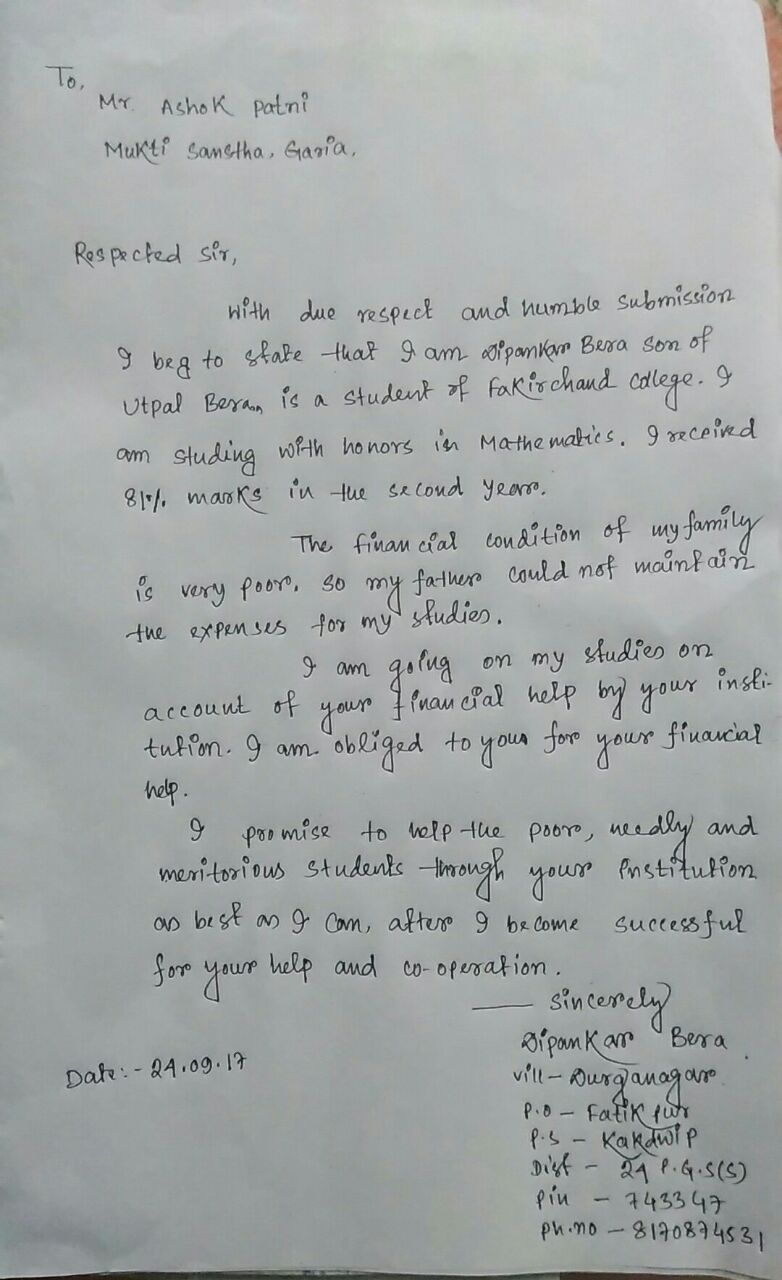 To,
Mr. Ashok Patni
Mukti Sanstha, Garia,
Respected Sir,
With due respect and humble submission
I beg to state that I am Dipankar Bera son of
Utpal Bera, is a student of Fakirchand College. I
am studing with honors in Mathematics. I received
81% marks in the second year.
The financial condition of my family
is very poor, so my father could not maintain
the expenses for my studies.
I am going on my studies on
account of your financial help by your insti-
tution. I am obliged to your for your financial
help.
I promise to help the poor, needly and
meritorious students through your institution
as best as I can, after I become successful
for your help and co-operation.
— Sincerely
Dipankar Bera
Date:- 24.09.17
vill - Durganagar
P.O - Fatikpur
P.S - Kakdwip
Dist - 24 P.G.S(S)
Pin - 743347
Ph.no - 8170874531